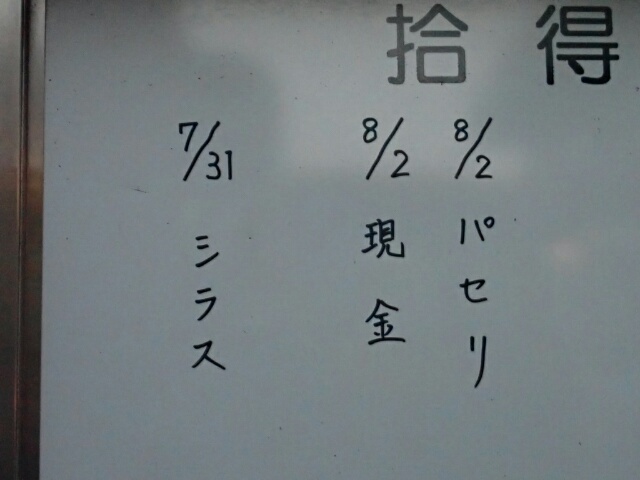 拾得
8/2 パセリ
8/2 現金
7/31 シラス